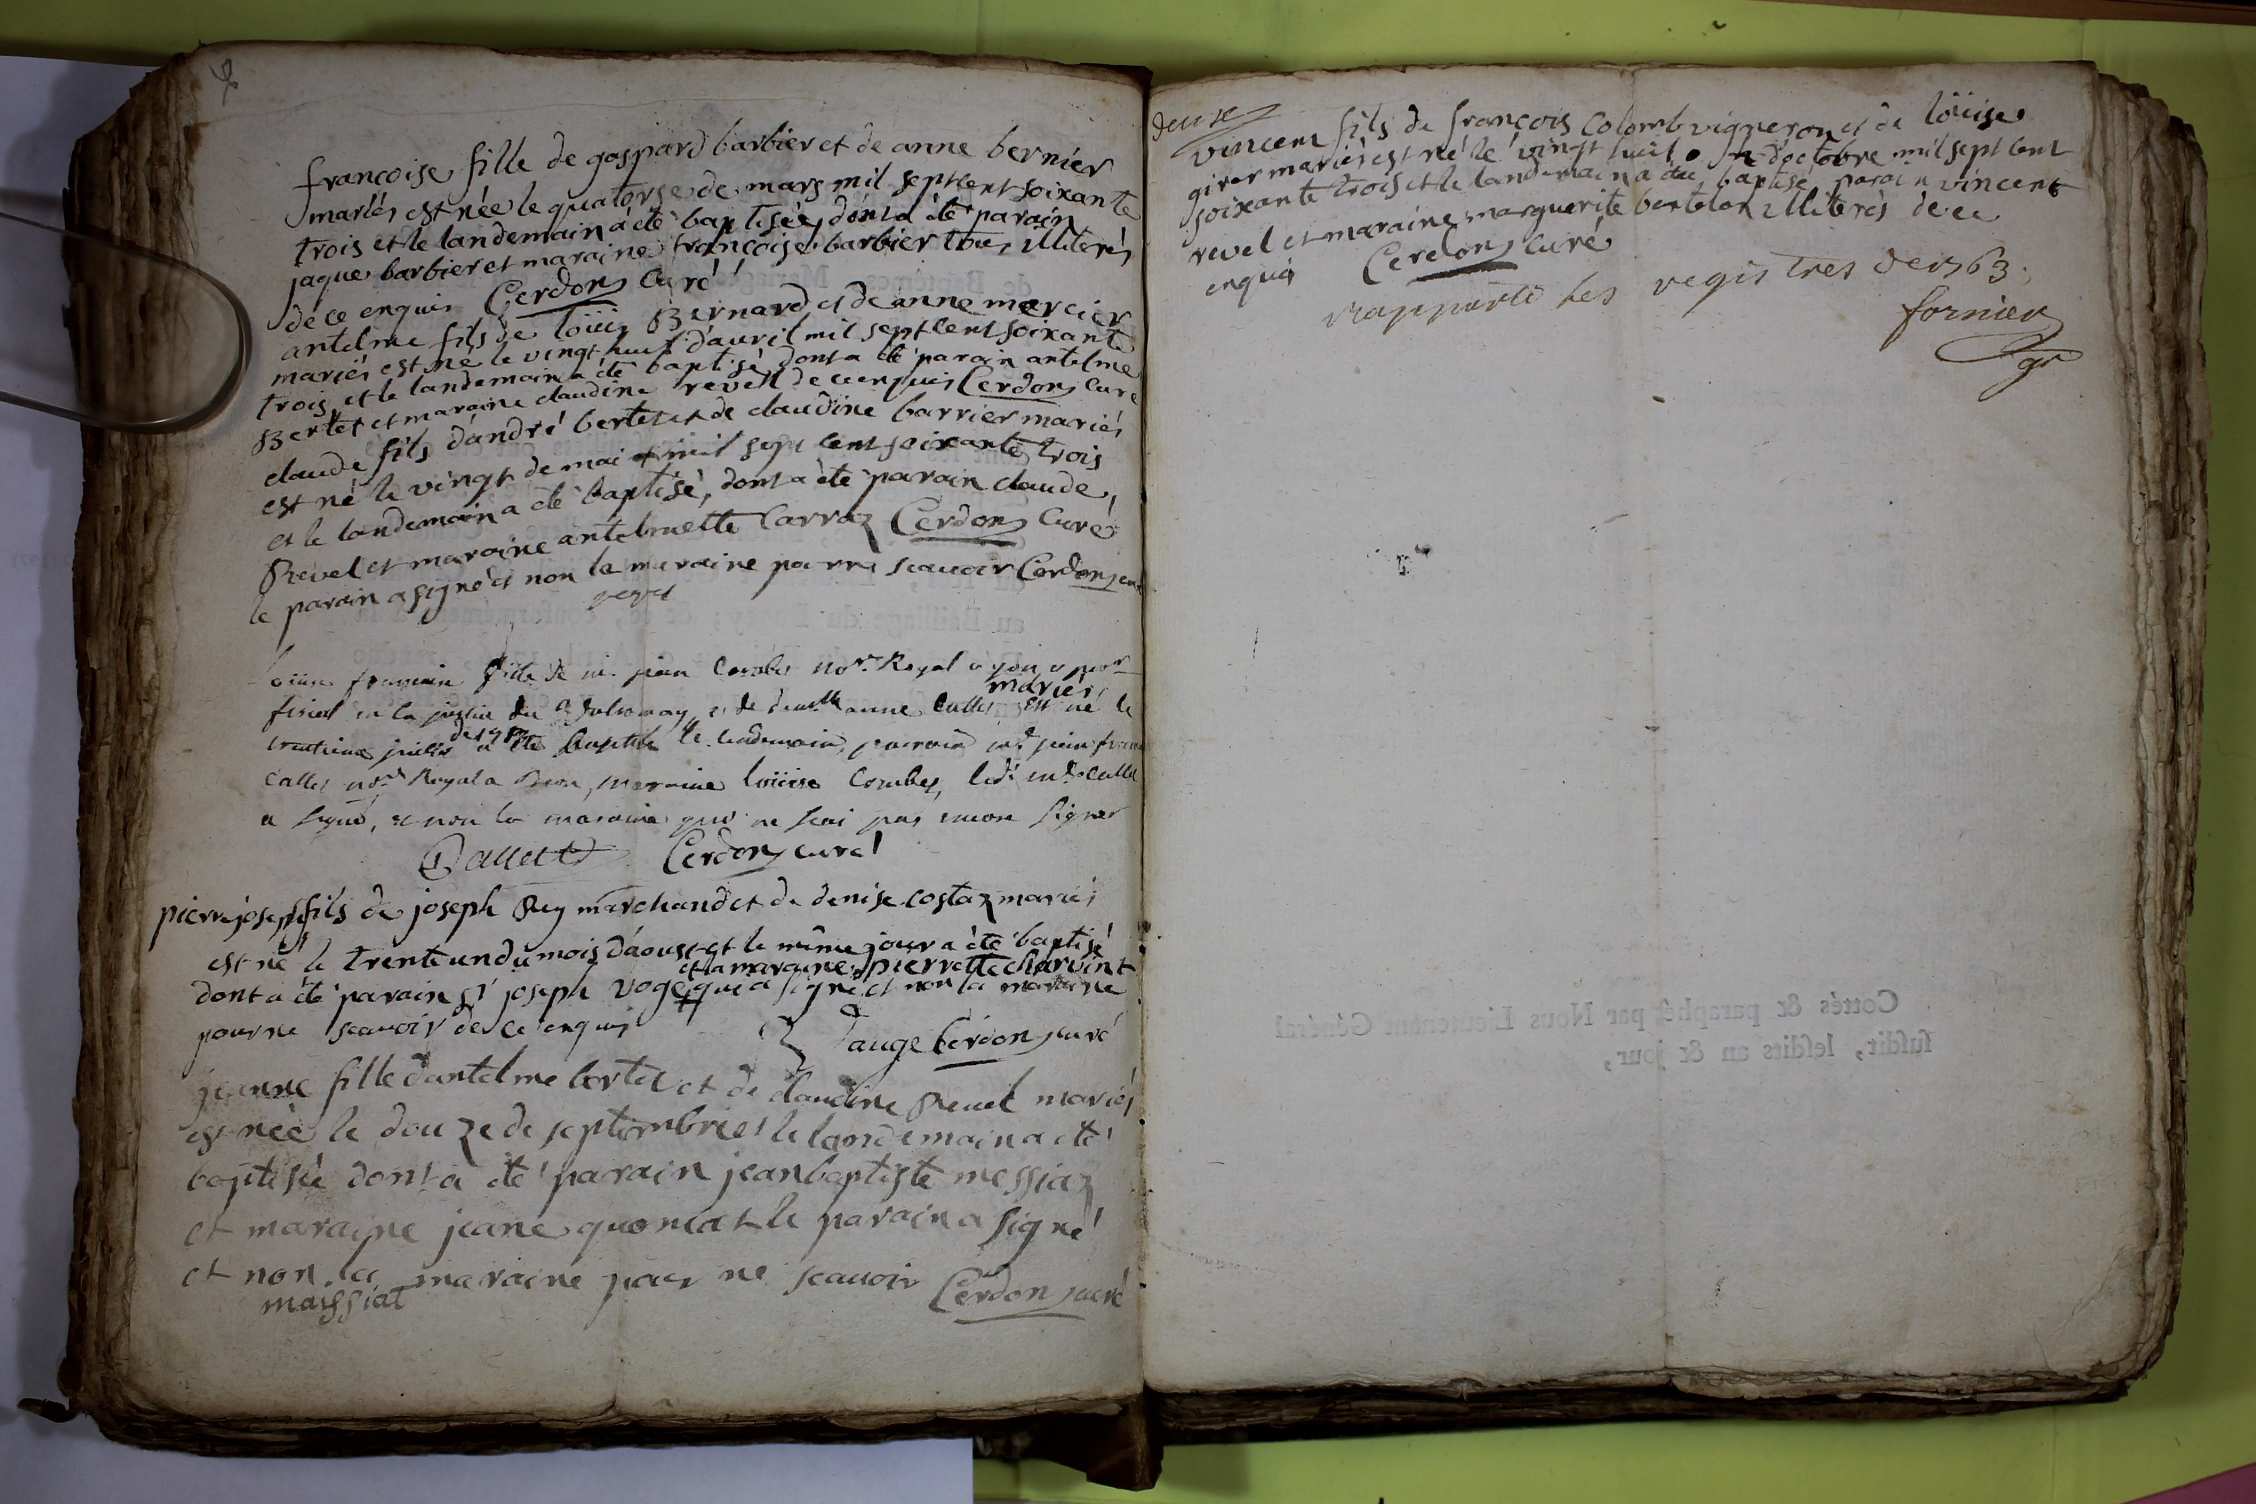 françoise fille de gaspard barbier et de anne bernier
mariés est née le quatorse de mars mil sept cent soixante
trois et le landemain a été baptisée, dont a été parain
jaque barbier et maraine françoise barbier tous illiterés
de ce enquis Cerdon Curé
antelme fils de loüis Bernard et de anne mercier
mariés est né le vingt huit d'auril mil sept cent soixante
trois et le landemain a été baptisé, dont a été parain antelme
Bertet et maraine claudine revel de ce enquis Cerdon Curé
claude fils d'andré bertet et de claudine barrier mariés
est né le vingt de mai mil sept cent soixante trois
et le landemain a été baptisé, dont a été parain claude
Revel et maraine antelmette Carraz Cerdon Curé
le parain a signé et non la maraine pour ne scauoir Cerdon curé
revel
fille de jean Combes Royal
mariés
fiscal en la justice du de anne Callet est né le
juillet a été baptisée le lendemain, parrain jean
Callet Royal a marraine loüise Combes, Callet
a signé, et non la maraine qui ne scai pas encore signer
Callet Cerdon curé
pierre joseph fils de joseph Rey marchand et de denise costaz mariés
est né le trente un du mois d'aoust et le même jour a été baptisé
et la maraine pierrette charvint
dont a été parain sr joseph voge qui a signé et non la maraine
pour ne scauoir de ce enquis
dauge Cerdon curé
jeanne fille d'antelme bertet et de claudine Reuel mariés
est née le douze de septembre et le landemain a été
baptisée dont a été parain jean baptiste messiaz
et maraine jeane quoniat le parain a signé
et non la maraine pour ne scauoir Cerdon curé
maissiat
vincent fils de françois Colomb vigneron et de loüise
girer mariés est né le vingt huit d'octobre mil sept cent
soixante trois et le landemain a été baptisé parain vincent
revel et maraine marguerite bertelon illiterés de ce
enquis Cerdon curé
rapporté les registres de 1763.
fornier
gr